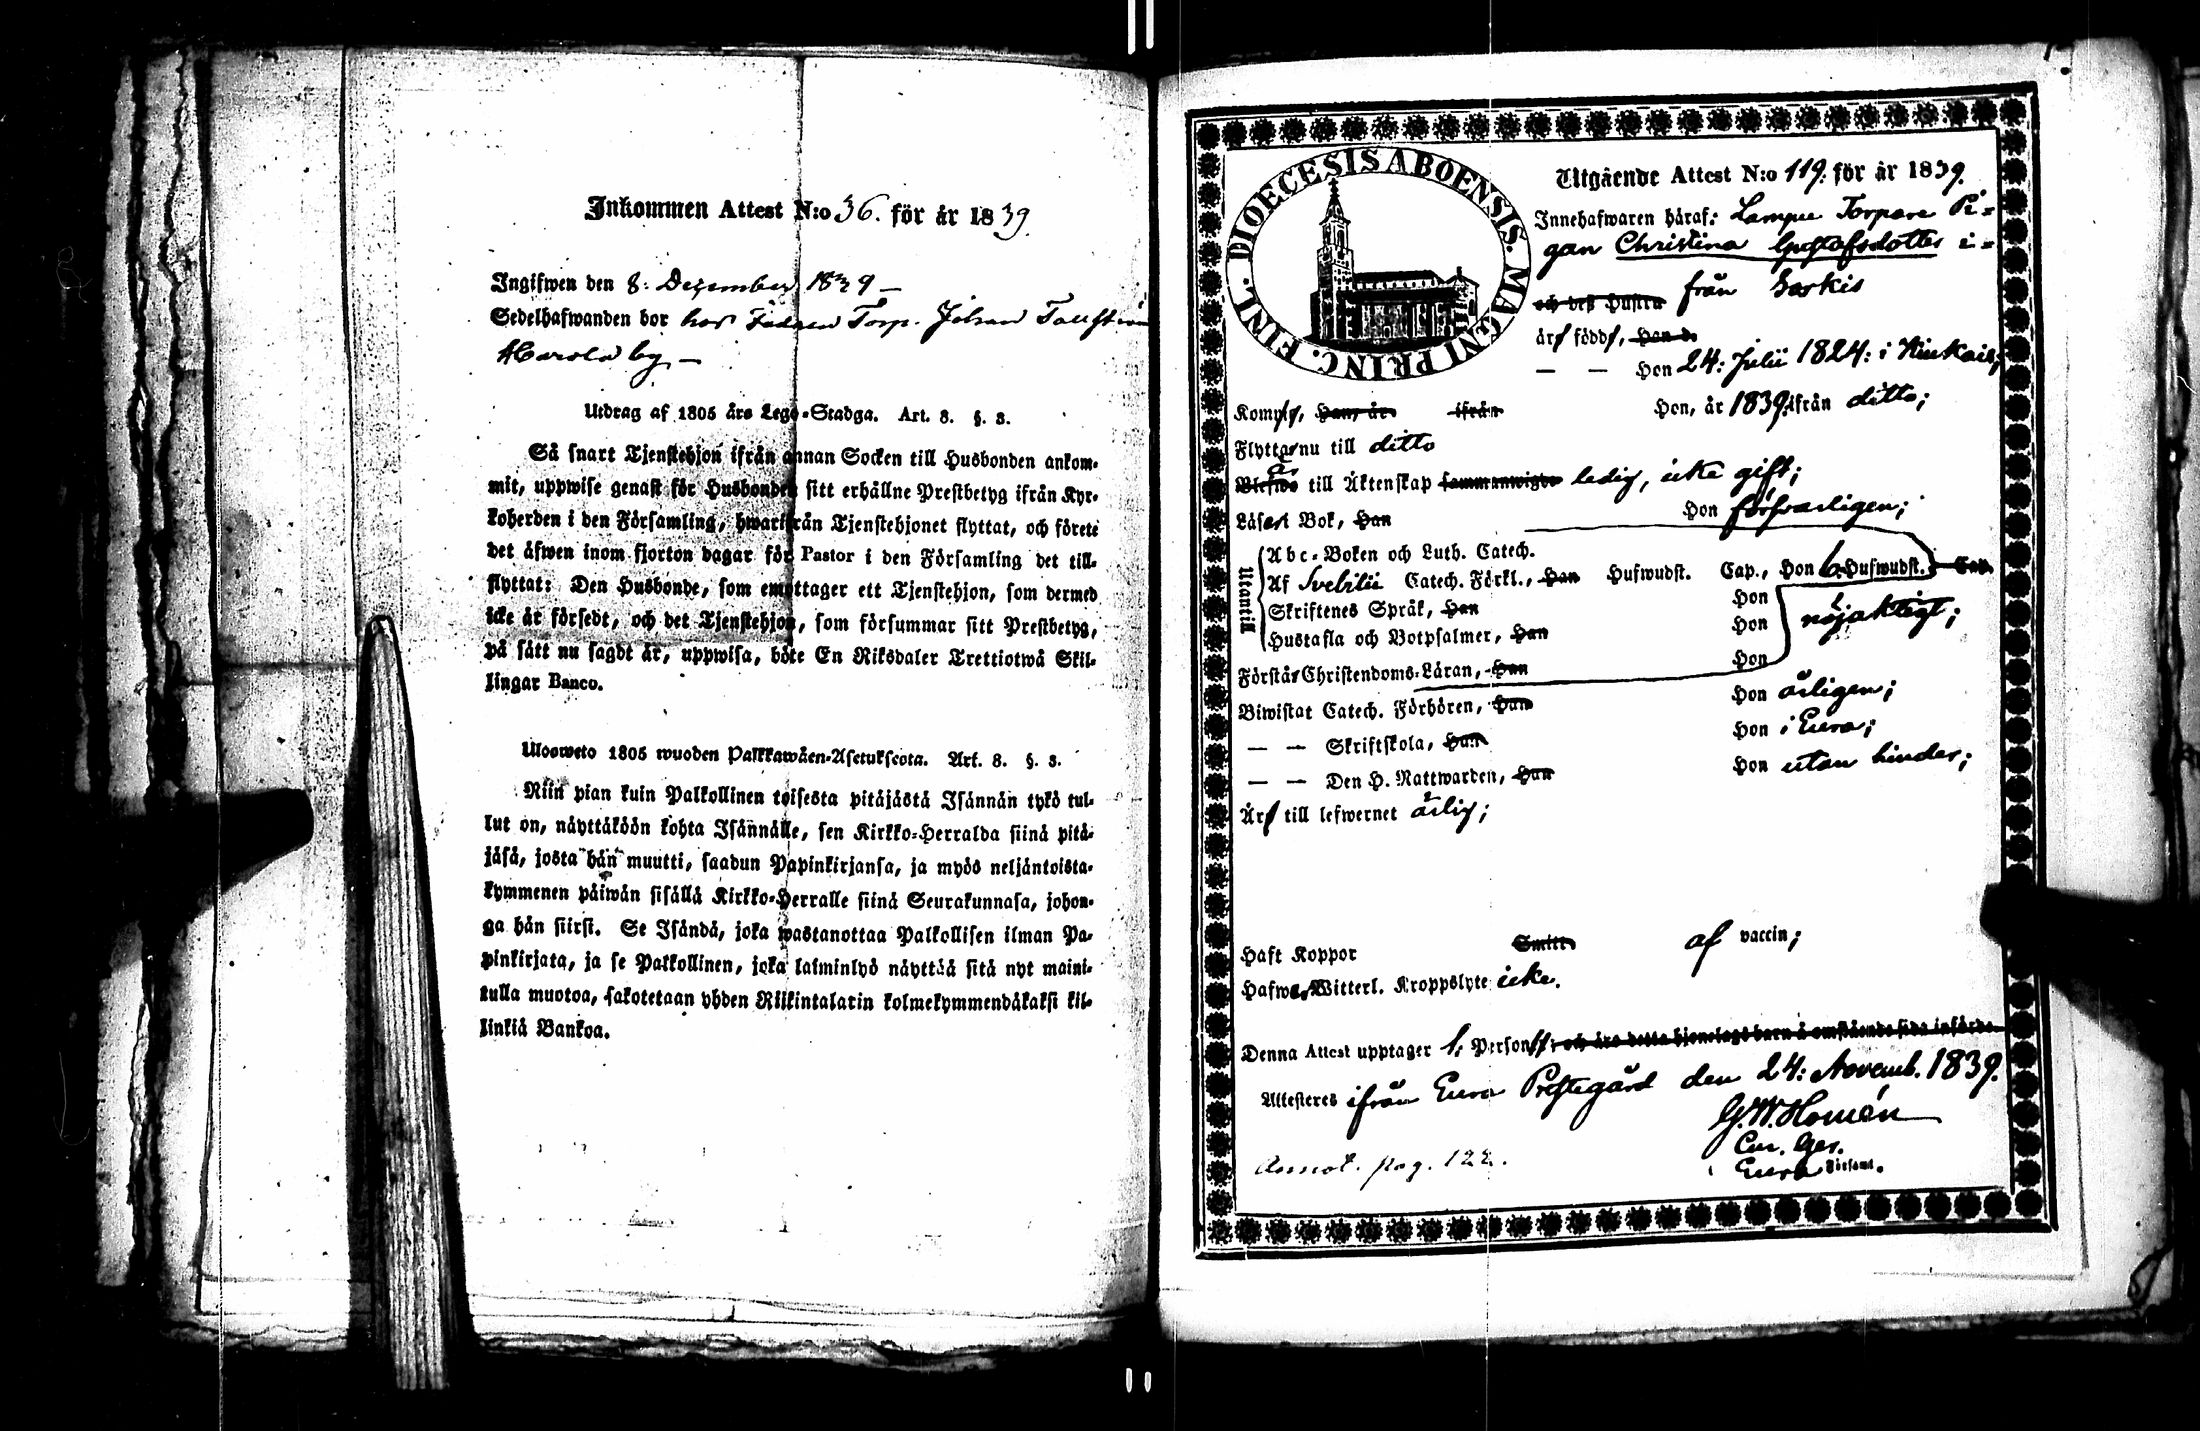 Inkommen Attest N:o 36. för år 1839
Ingifwen den 8: December 1839 —
Sedelhafwanden bor hos Torp. Johan
by —
Utdrag af 1805 års Lego-Stadga. Art. 8. §. 3.
Så snart Tjenstehjon ifrån annan Socken till Husbonden ankom-
mit, uppwise genast för Husbonden sitt erhållne Prestbetyg ifrån Kyr-
koherden i den Församling, hwarifrån Tjenstehjonet flyttat, och förete
det äfwen inom fjorton dagar för Pastor i den Församling det till-
flyttat: Den Husbonde, som emottager ett Tjenstehjon, som dermed
icke är försedt, och det Tjenstehjon, som försummar sitt Prestbetyg,
på sätt nu sagdt är, uppwisa, böte En Riksdaler Trettiotwå Skil-
lingar Banco.
Ulosweto 1805 wuoden Palkkawäen-Asetuksesta. Art. 8. §. 3.
Niin pian kuin Palkollinen toisesta pitäjästä Isännän tykö tul-
lut on, näyttäköön kohta Isännälle, sen Kirkko-Herralda siinä pitä-
jäsä, josta hän muutti, saadun Papinkirjansa, ja myös neljäntoista-
kymmenen päiwän sisällä Kirkko-Herralle siinä Seurakunnasa, johon-
ga hän siirsi. Se Isändä, joka wastanottaa Palkollisen ilman Pa-
pinkirjata, ja se Palkollinen, joka laiminlyö näyttää sitä nyt maini-
tulla muotoa, sakotetaan yhden Riikintalarin kolmekymmendäkaksi kil-
linkiä Bankoa.
DIOECESIS ABOENSIS. MAGNI PRINC. FINL.
Utgående Attest N:o 119. för år 1839.
Innehafwaren häraf: Torpare Pi-
gan Christina Gustafsdotter i-
och deß Hustru från
är född, Han d.
— — Hon 24: Julii 1824: i
Kom, Han, år ifrån Hon, år 1839 ifrån ditto;
Flyttar nu till ditto
Blefwo är till Äktenskap sammanwigde ledig, icke gift;
Läser i Bok, Han Hon försvarligen;
Utantill
Abc-Boken och Luth. Catech.
Af Svebilii Catech. Förkl., Han Hufwudst. Cap., Hon 6. Hufwudst. Cap.
Skriftenes Språk, Han Hon
Hustafla och Botpsalmer, Han Hon nöjaktigt;
Förstår Christendoms-Läran, Han Hon
Biwistat Catech. Förhören, Han Hon årligen;
— — Skriftskola, Han Hon i Eura;
— — Den H. Nattwarden, Han Hon utan hinder;
Är till lefwernet ärlig;
Haft Koppor Smitt. af vaccin;
Hafwer Witterl. Kroppslyte icke.
Denna Attest upptager 1. Person; och äro detta hjonelags barn å omstående sida införde.
Attesteres ifrån Eura Prestegård den 24: Novemb. 1839.
G.W. Homén
Cur. Ger.
i Eura Församl.
Annot. pag. 122.